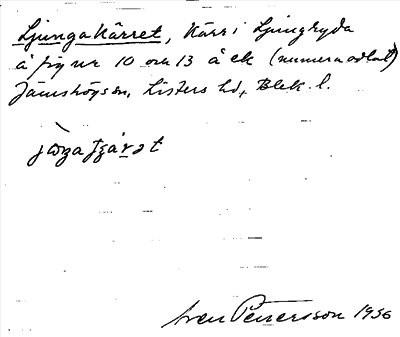 Ljungakärret, Kärr i Ljungryda
å fig nr 10 och 13 å ek (numera odlat)
Jämshögs sn, Listers hd, Blek. l.
Sven Petersson 1936